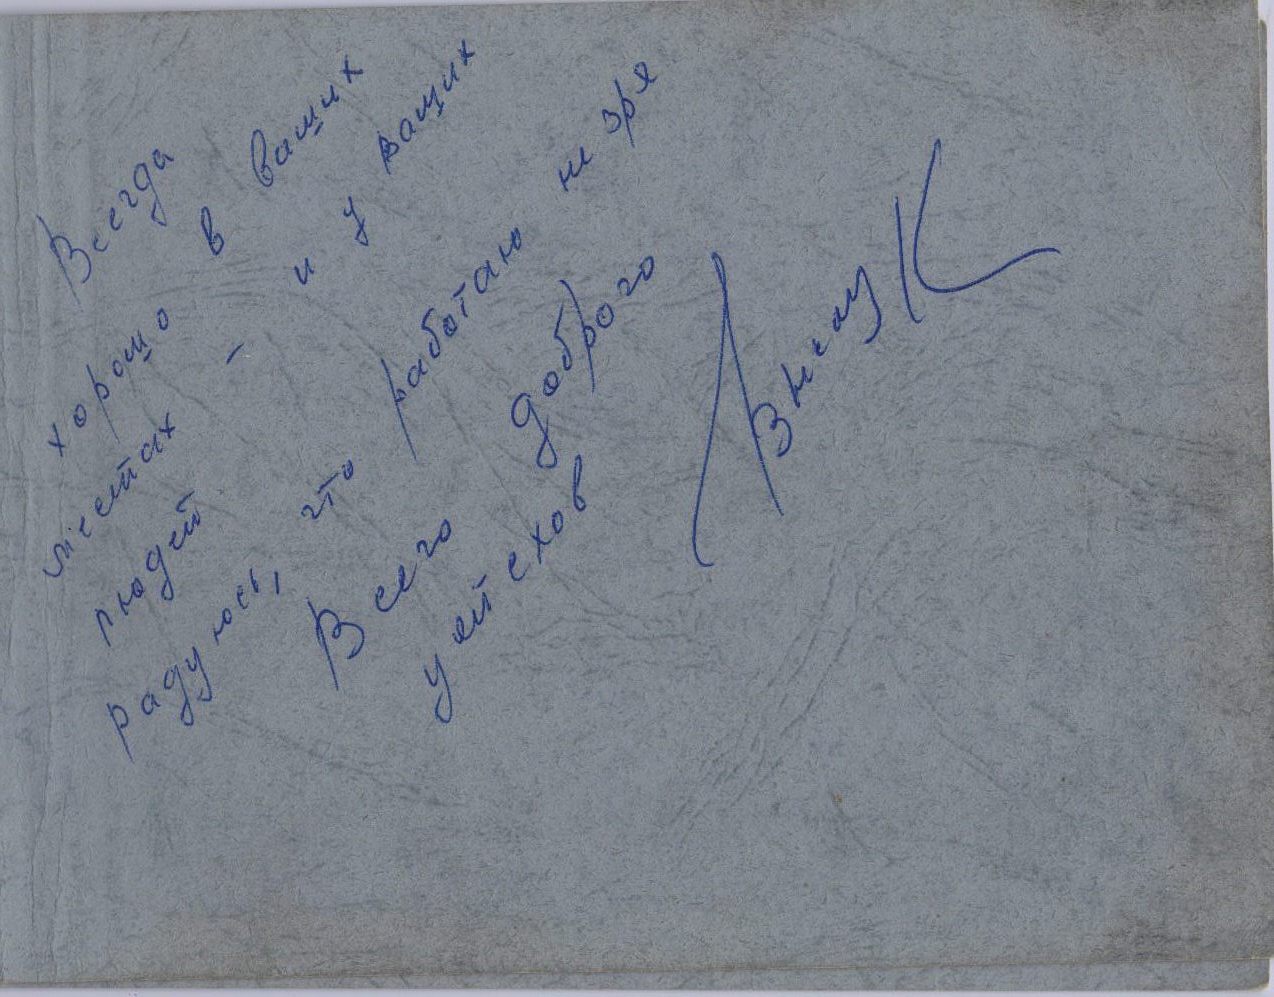 Всегда
хорошо в ваших
местах – и у ваших
людей
радуюсь, что работаю не зря
Всего доброго
успехов